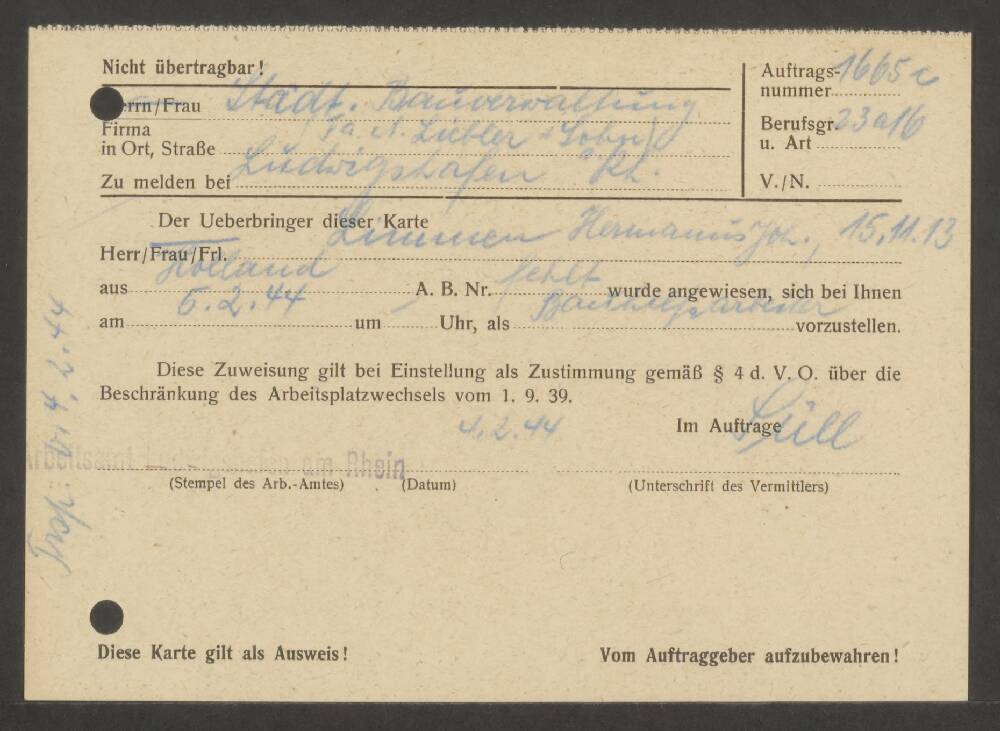 Nicht übertragbar!
Auftrags- 1665 c
nummer
Herrn/Frau Städt. Bauverwaltung
Firma (Fa. A. Liebler & Sohn)
Berufsgr. 23 a 16
u. Art
in Ort, Straße Ludwigshafen Rh.
Zu melden bei
V./N.
Der Ueberbringer dieser Karte
Herr/Frau/Frl. Limmen Hermanus Joh., 15.11.13
aus Holland A. B. Nr. fehlt wurde angewiesen, sich bei Ihnen
am 6.2.44 um Uhr, als Bauhilfsarbeiter vorzustellen.
Diese Zuweisung gilt bei Einstellung als Zustimmung gemäß § 4 d. V. O. über die
Beschränkung des Arbeitsplatzwechsels vom 1. 9. 39.
4.2.44 Im Auftrage
Arbeitsamt Ludwigshafen am Rhein
(Stempel des Arb.-Amtes) (Datum) (Unterschrift des Vermittlers)
4.2.44
Diese Karte gilt als Ausweis! Vom Auftraggeber aufzubewahren!